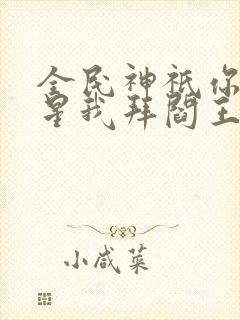 全民神祇你
星我拜阎王
小咸菜